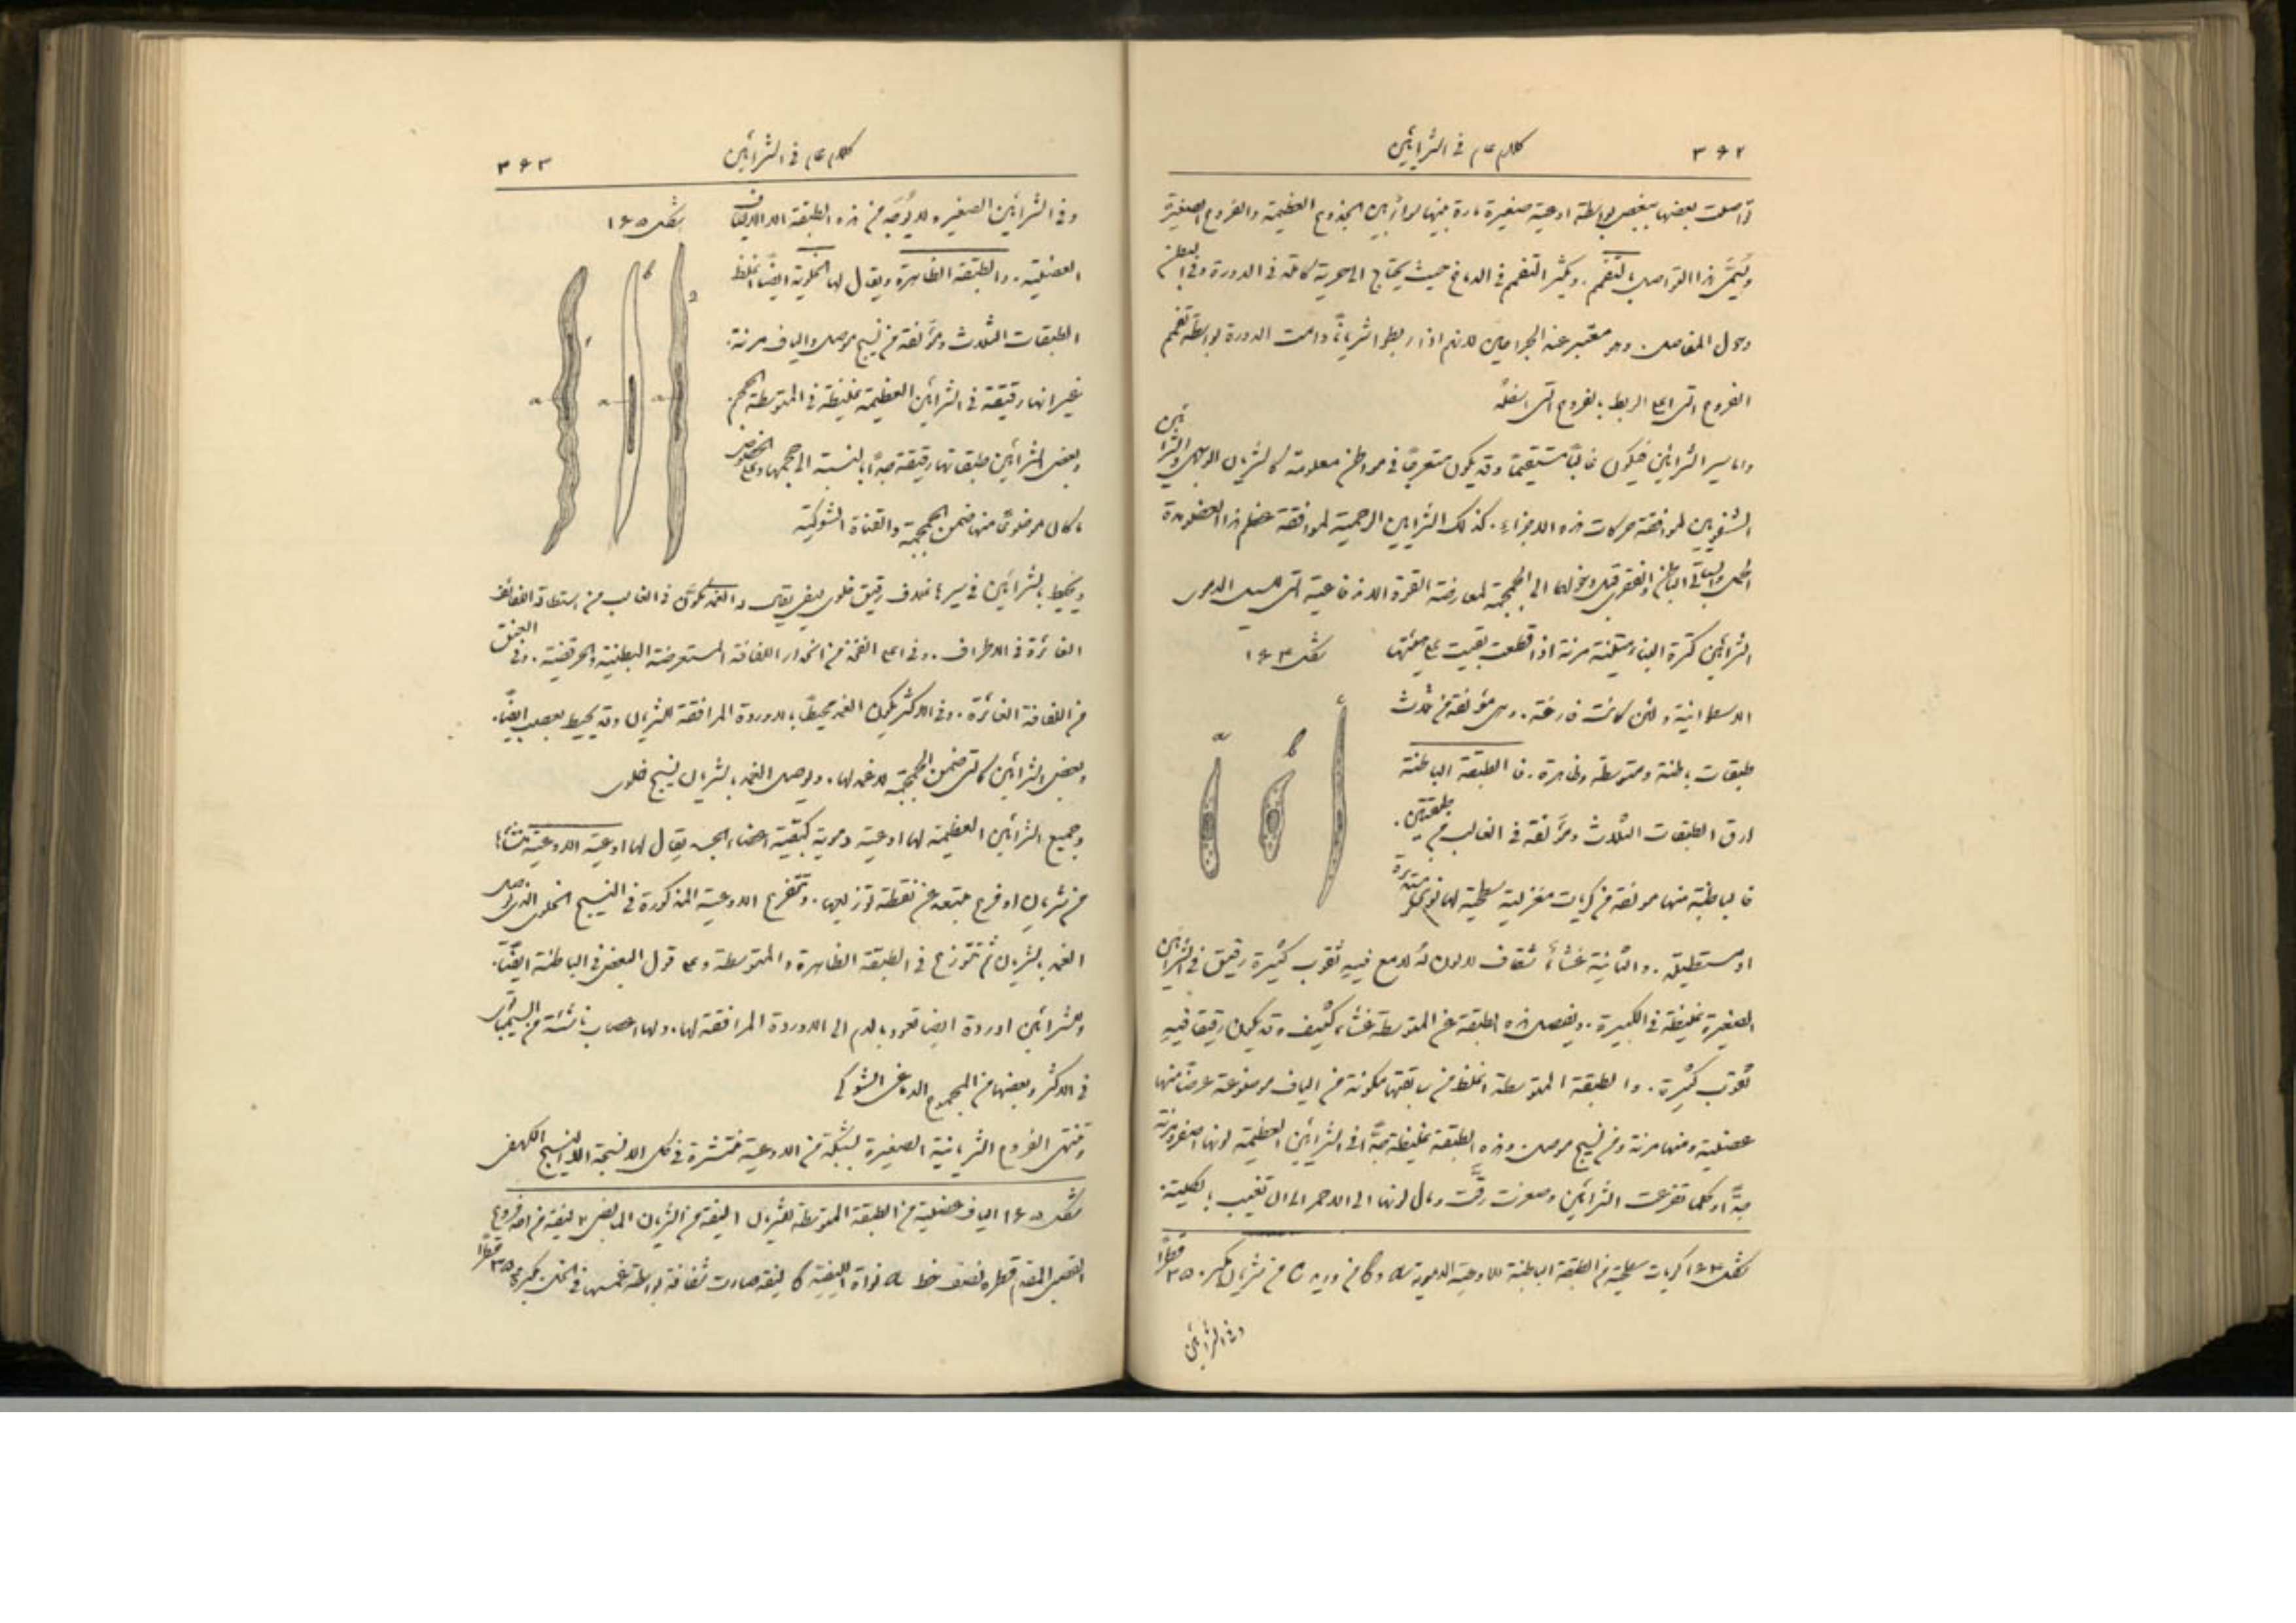 ٣٦٢
كلام عام في الشرايين
تواصلت بعضها ببعض بواسطة اوعية صغيرة مارة بينها سواء بين الجذوع العظيمة والفروع الصغيرة
ويُسمَّى هذا التواصل بالتفمّم. ويكثر التفمم في الدماغ حيث يحتاج الى حرية كاملة في الدورة وفي البطن
وحول المفاصل. وهو معتبر عند الجراحيين لانهم اذا ربطوا شرياناً دامت الدورة بواسطة تفمم
الفروع التي اعلى الربط بالفروع التي اسفلهُ
واما سير الشرايين فيكون غالباً مستقيماً وقد يكون متعرجاً في مواطن معلومة كالشريان الوجهي والشرايين
الشفويين لموافقة حركات هذه الاجزاء. كذلك الشرايين الرحمية لموافقة عظم هذا العضو مدة
الحمل والسباتي الباطن والفقري قبل دخولهما الى الجمجمة لمعارضة القوة الاندفاعية التي للسيل الدموي
الشرايين كثيرة البناء متينة مرنة اذا قطعت بقيت على هيئتها
شكل ١٦٤
الاسطوانية ولئن كانت فارغة. وهي مؤلفة من ثلاث
طبقات باطنة ومتوسطة وظاهرة. فالطبقة الباطنة
ارق الطبقات الثلاث ومؤلفة في الغالب من طبقتين.
فالباطنة منها مولفة من كريات مغزلية سطحية لها نوى مستديرة
او مستطيلة. والثانية غشاءٌ شفاف لا لون لهُ لامع فيهِ ثقوب كثيرة رقيق في الشرايين
الصغيرة غليظة في الكبيرة. ويفصل هذه الطبقة عن المتوسطة غشاء كثيف وقد يكون رقيقا فيهِ
ثقوب كثيرة. والطبقة المتوسطة اغلظ من سابقتها مكونة من الياف موضوعة عرضاً منها
عضلية ومنها مرنة ومن نسيج موصل. وهذه الطبقة غليظة جدًّا في الشرايين العظيمة لونها اصفر ومرنة
جدًّا وكلما تفرعت الشرايين وصغرت رقَّت ومال لونها الى الاحمر الى ان تغيب بالكلية.
شكل ١٦٤ كريات سطحية من الطبقة الباطنة للاوعية الدموية a و b من وريد c من شريان مكبر ٣٥٠ قطرًا
وفي الشرايين
كلام عام في الشرايين
٣٦٣
وفي الشرايين الصغيرة لا يُوجَد من هذه الطبقة الا الالياف
شكل ١٦٥
العضلية. والطبقة الظاهرة ويقال لها الخلوية ايضاً اغلظ
الطبقات الثلاث ومؤلفة من نسيج موصل والياف مرنة.
غير انها رقيقة في الشرايين العظيمة غليظة في المتوسطة الحجم.
وبعض الشرايين طبقاتها رقيقة جدًّا بالنسبة الى حجمها وعلى الخصوص
ما كان موضوعاً منها ضمن الجمجمة والقناة الشوكية
ويحيط بالشرايين في سيرها غلاف رقيق خلوي ليفي يقال له الغمد يتكوَّن في الغالب من استطالة اللفائف
الغائرة في الاطراف. وفي اعلى الفخذ من انحدار اللفافة المستعرضة البطنية والحرقفية. وفي العنق
من اللفافة الغائرة. وفي الاكثر يكون الغمد محيطاً بالاوردة المرافقة للشريان وقد يحيط بعصب ايضًا.
وبعض الشرايين كالتي ضمن الجمجمة لا غمد لها. ويوصل الغمد بالشريان نسيج خلوي
وجميع الشرايين العظيمة لها اوعية دموية كبقية اعضاء الجسد يقال لها اوعية الاوعية منشأها
من شريان او فرع مبتعد عن نقطة توزيعها. وتتفرع الاوعية المذكورة في النسيج الخلوي الذي يوصل
الغمد بالشريان ثم تتوزع في الطبقة الظاهرة والمتوسطة وعلى قول البعض في الباطنة ايضًا.
وللشرايين اوردة ايضا تعود بالدم الى الاوردة المرافقة لها. ولها اعصاب ناشئة من السيمباثوي
في الاكثر وبعضها من المجموع الدماغي الشوكي
وتنتهي الفروع الشريانية الصغيرة بشبكة من الاوعية منتشرة في كل الانسجة الا النسيج الكهفي
شكل ١٦٥ الياف عضلية من الطبقة المتوسطة للشريان ١ ليفة من الشريان المابضي ٢ ليفة من احد فروع
القصبي المقدم قطره نصف خط a نواة الليفة b ليفة صارت شفافة بواسطة غمسها في الخل. مكبرة ٣٥٠ قطرًا